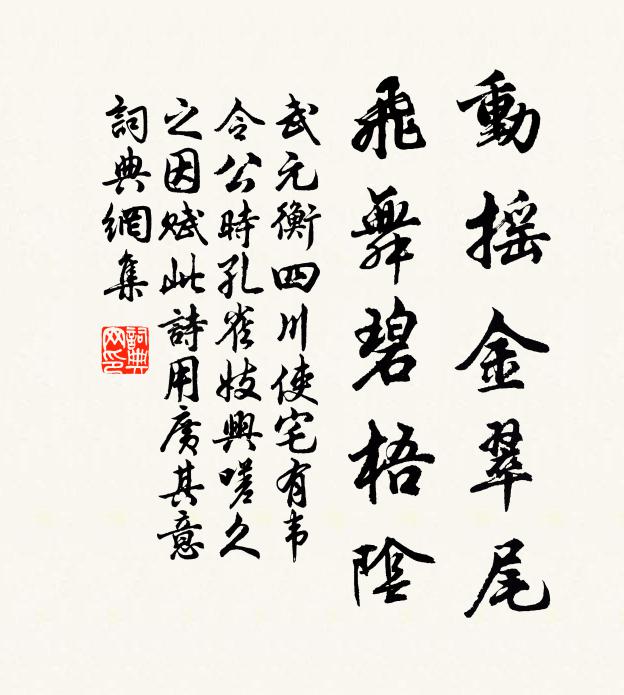 動搖金翠尾
飛舞碧梧陰
武元衡四川使宅有韦
令公時孔雀妓興嗟久
之因赋此詩用廣其意
詞典網集
詞典
网印